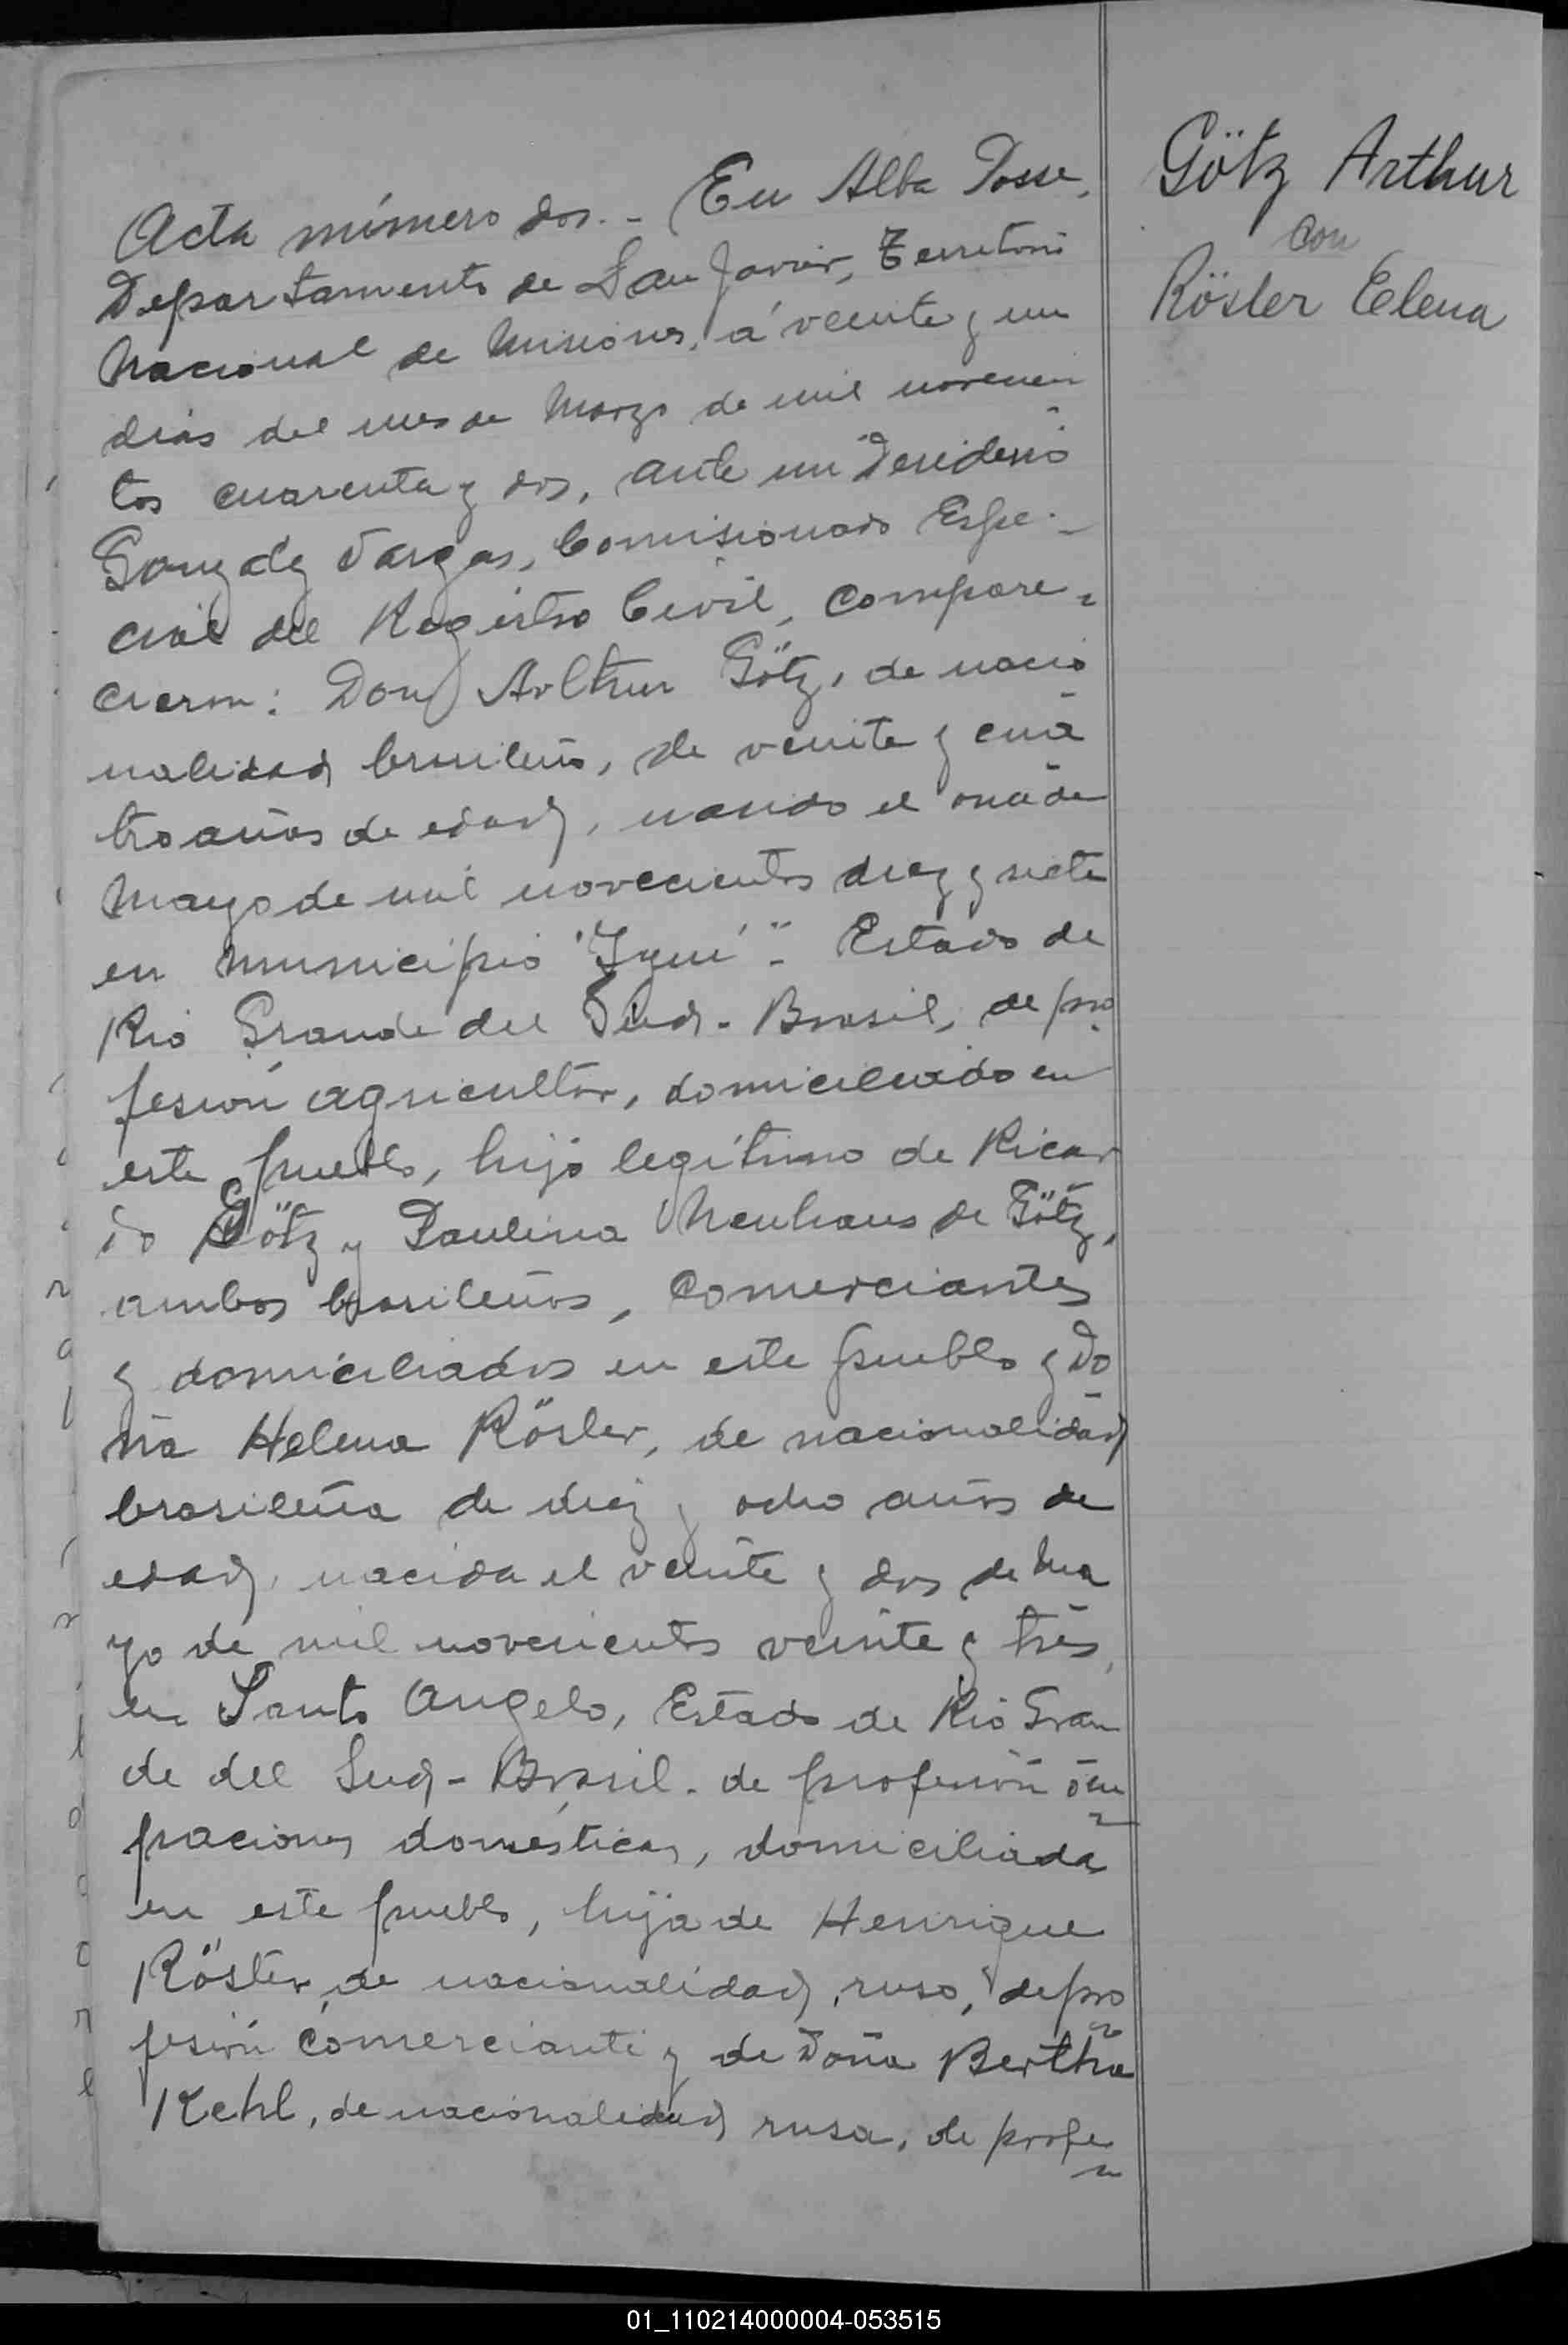 Acta número dos.- En Alba Posse,
Departamento de San Javier, Territorio
Nacional de Misiones, á veinte y un
dias del mes de Marzo de mil novecien
tos cuarenta y dos, ante mi Desiderio
Gonzalez Vargas, Comisionado Espe-
cial del Registro Civil, compare-
cieron: Don Arthur Götz, de nacio
nalidad brasileño, de veinte y cua
tro años de edad, nacido el once de
Mayo de mil novecientos diez y siete
en Municipio "Ijuí" - Estado de
Rio Grande del Sud - Brasil, de pro
fesión agricultor, domiciliado en
este pueblo, hijo legítimo de Ricar
do Götz y Paulina Neuhaus de Götz,
ambos brasileños, comerciantes
y domiciliados en este pueblo y Do
ña Helena Rösler, de nacionalidad
brasileña de diez y ocho años de
edad, nacida el veinte y dos de Ma
yo de mil novecientos veinte y tres,
en Santo Angelo, Estado de Rio Gran
de del Sud - Brasil. de profesión ocu
paciones domésticas, domiciliada
en este pueblo, hija de Henrique
Rösler, de nacionalidad, ruso, de pro
fesión comerciante y de Doña Bertha
Kehl, de nacionalidad rusa, de profe
Götz Arthur
con
Rösler Elena
01_110214000004-053515